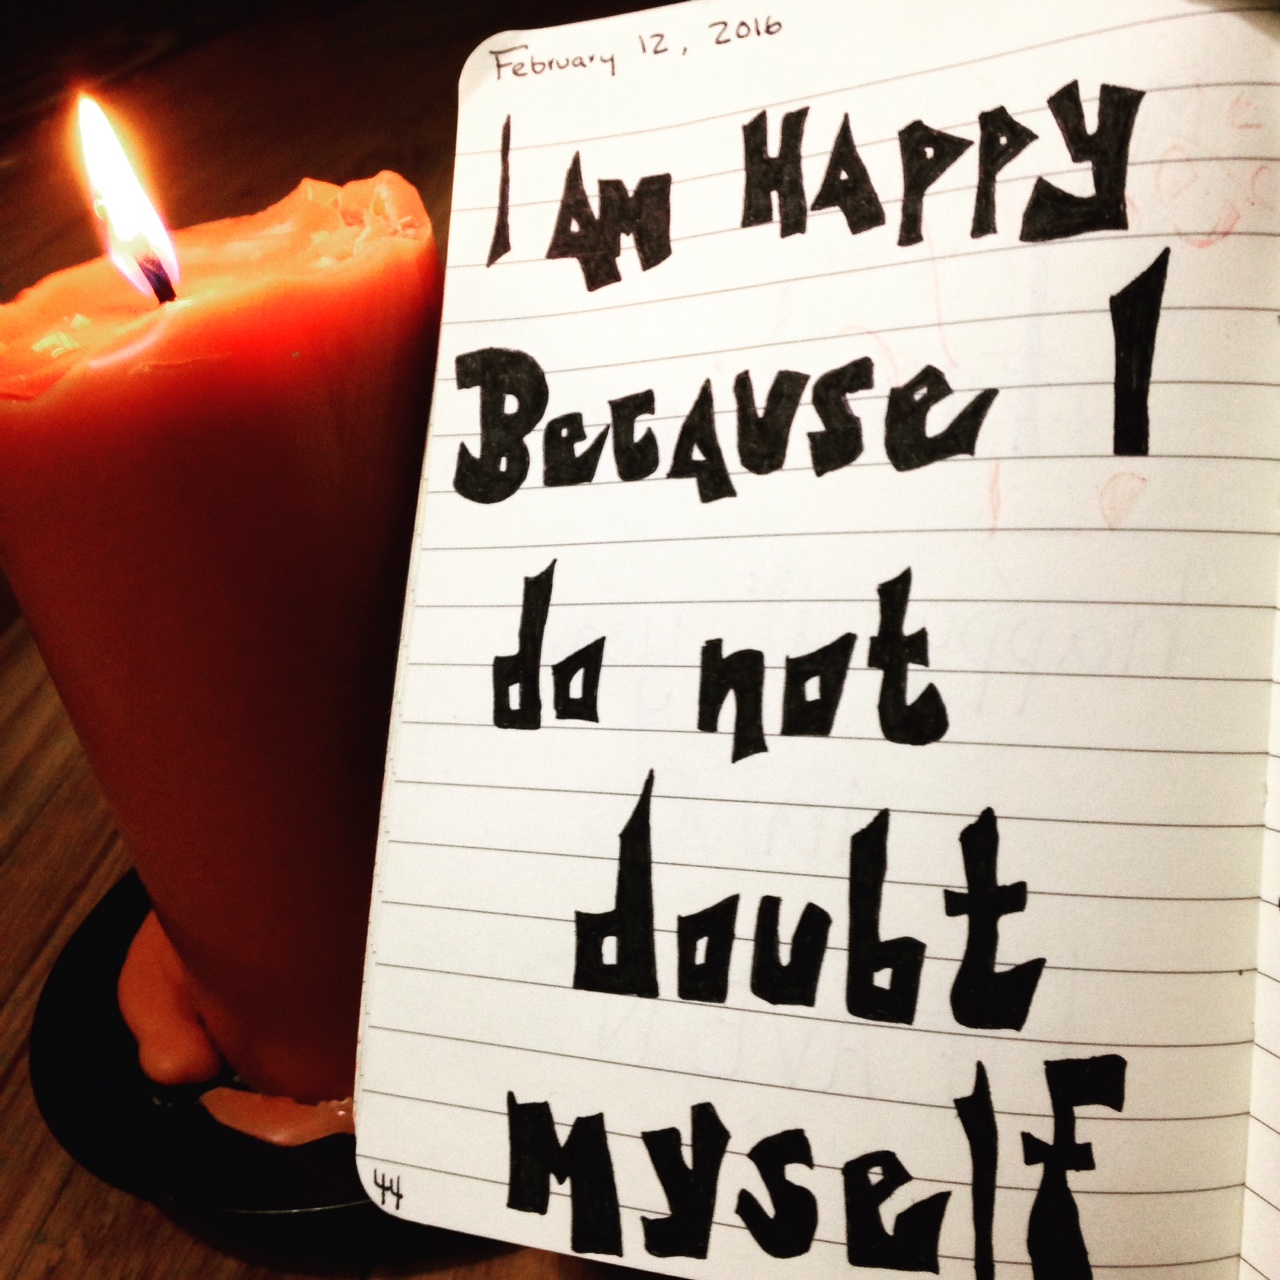 February 12, 2016
I AM HAPPY
BECAUSE I
do not
doubt
MYSELF
44